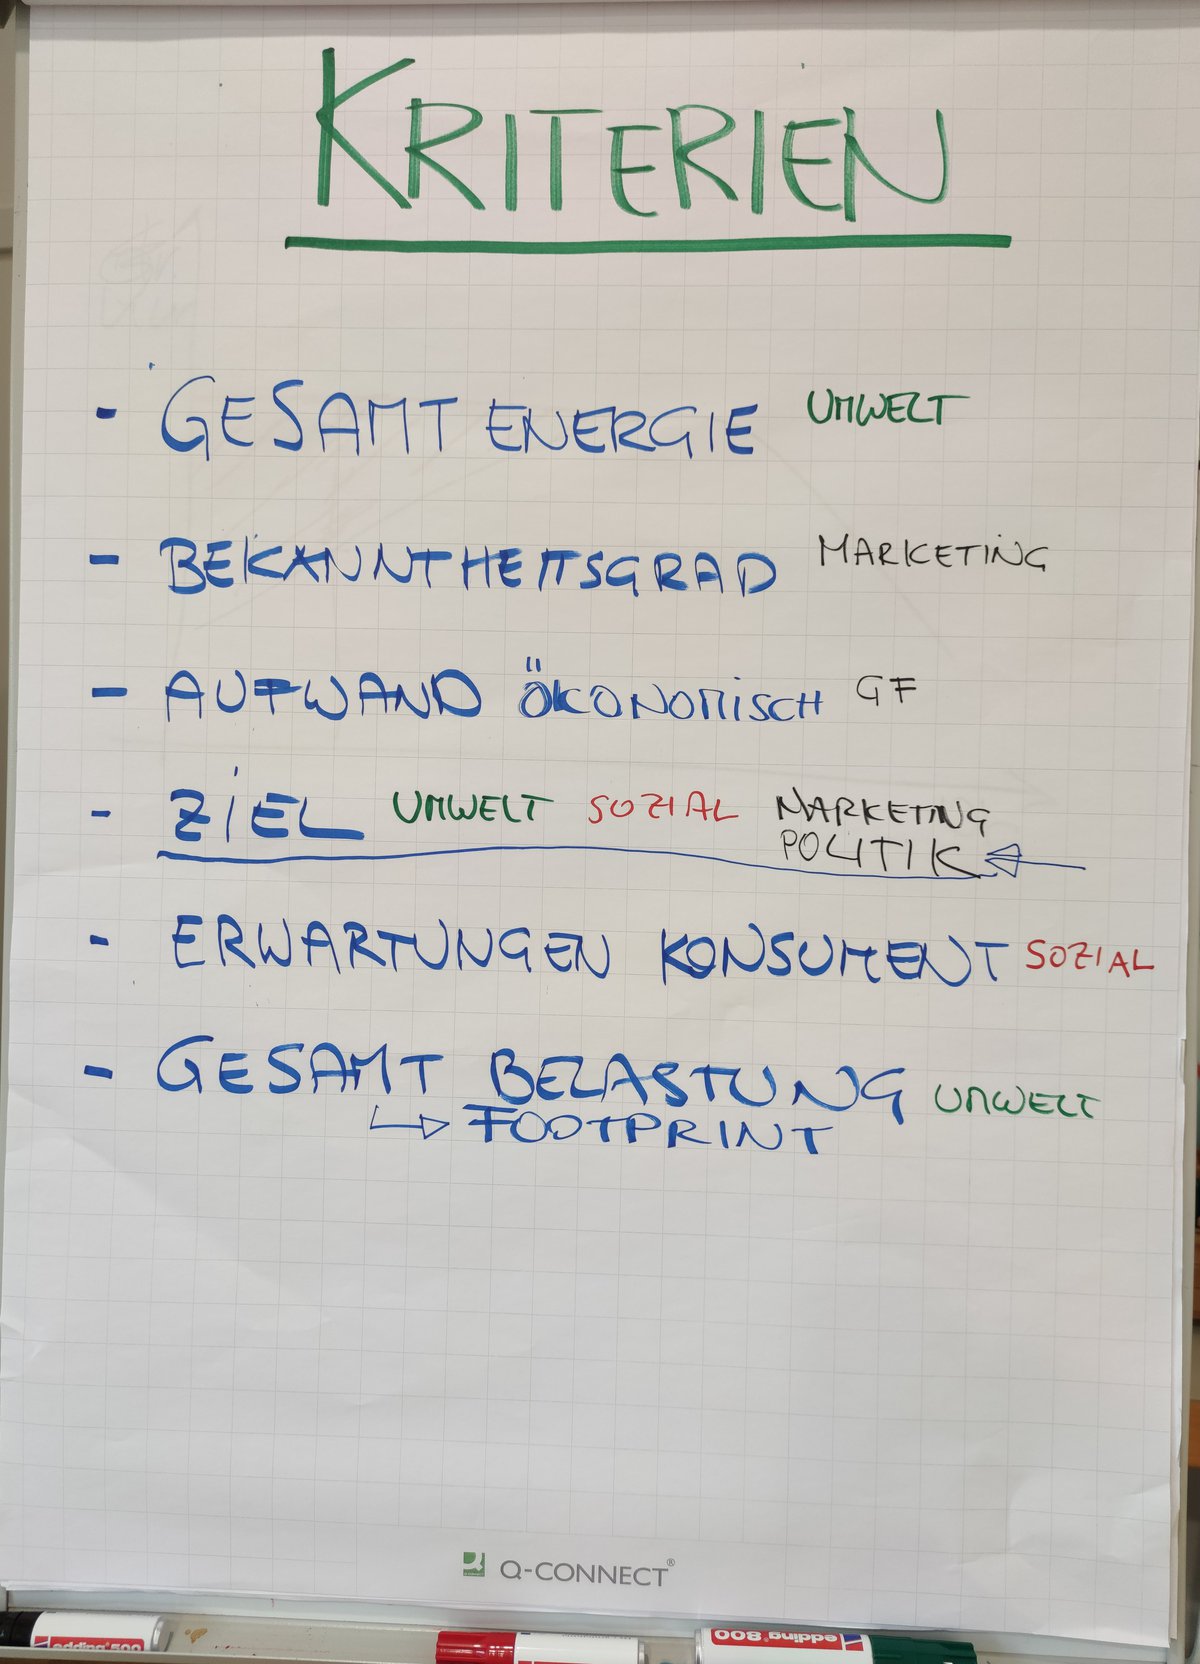 KRITERIEN
- GESAMT ENERGIE UMWELT
- BEKANNTHEITSGRAD MARKETING
- AUFWAND ÖKONOMISCH GF
- ZIEL UMWELT SOZIAL MARKETING
POLITIK
- ERWARTUNGEN KONSUMENT SOZIAL
- GESAMT BELASTUNG UMWELT
FOOTPRINT
Q-CONNECT®
edding 500
edding 800